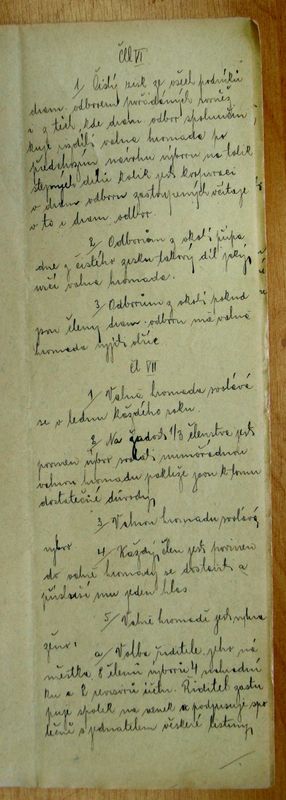 Čl VI
1/ Čistý zisk ze všech podniků
dram. odborem pořádaných rovněž
i z těch, kde dram. odbor spoluúčin
kuje rozdělí valná hromada po
předchozím návrhu výboru na tolik
stejných dílů kolik jest korporací
v dram. odboru zastoupených včítaje
v to i dram. odbor.
2/ Odborům z okolí připa
dne z čistého zisku takový díl jaký
určí valná hromada.
3 Odborům z okolí pokud
jsou členy dram. odboru má valná
hromada vyjíti vstříc
Čl VII
1/ Valná hromada svolává
se v lednu každého roku.
2/ Na žádost 1/3 členstva jest
povinen výbor svolati mimořádnou
valnou hromadu pakliže jsou k tomu
dostatečné důvody,
3 Valnou hromadu svolává
výbor
4/ Každý člen jest povinen
do valné hromady se dostaviti a
přísluší mu jeden hlas
5/ Valné hromadě jest vyhra
zeno:
a/ Volba ředitele, jeho ná
městka 8 členů výboru 4 náhradní
ku a 2 revisorů účtu. Ředitel zastu
puje spolek na venek a podpisuje spo
lečně s jednatelem veškeré listiny,